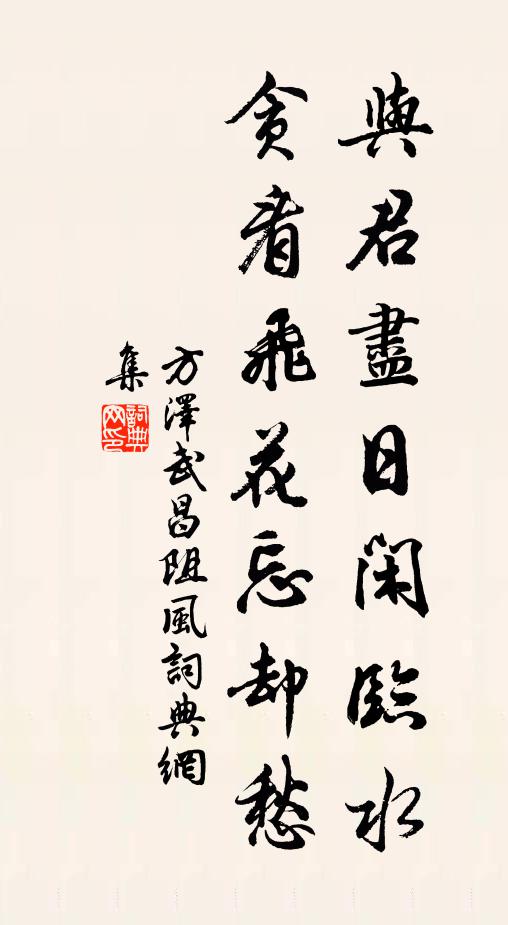 與君盡日閑臨水
貪看飛花忘却愁
方澤武昌阻風詞典網
集
詞典
网印